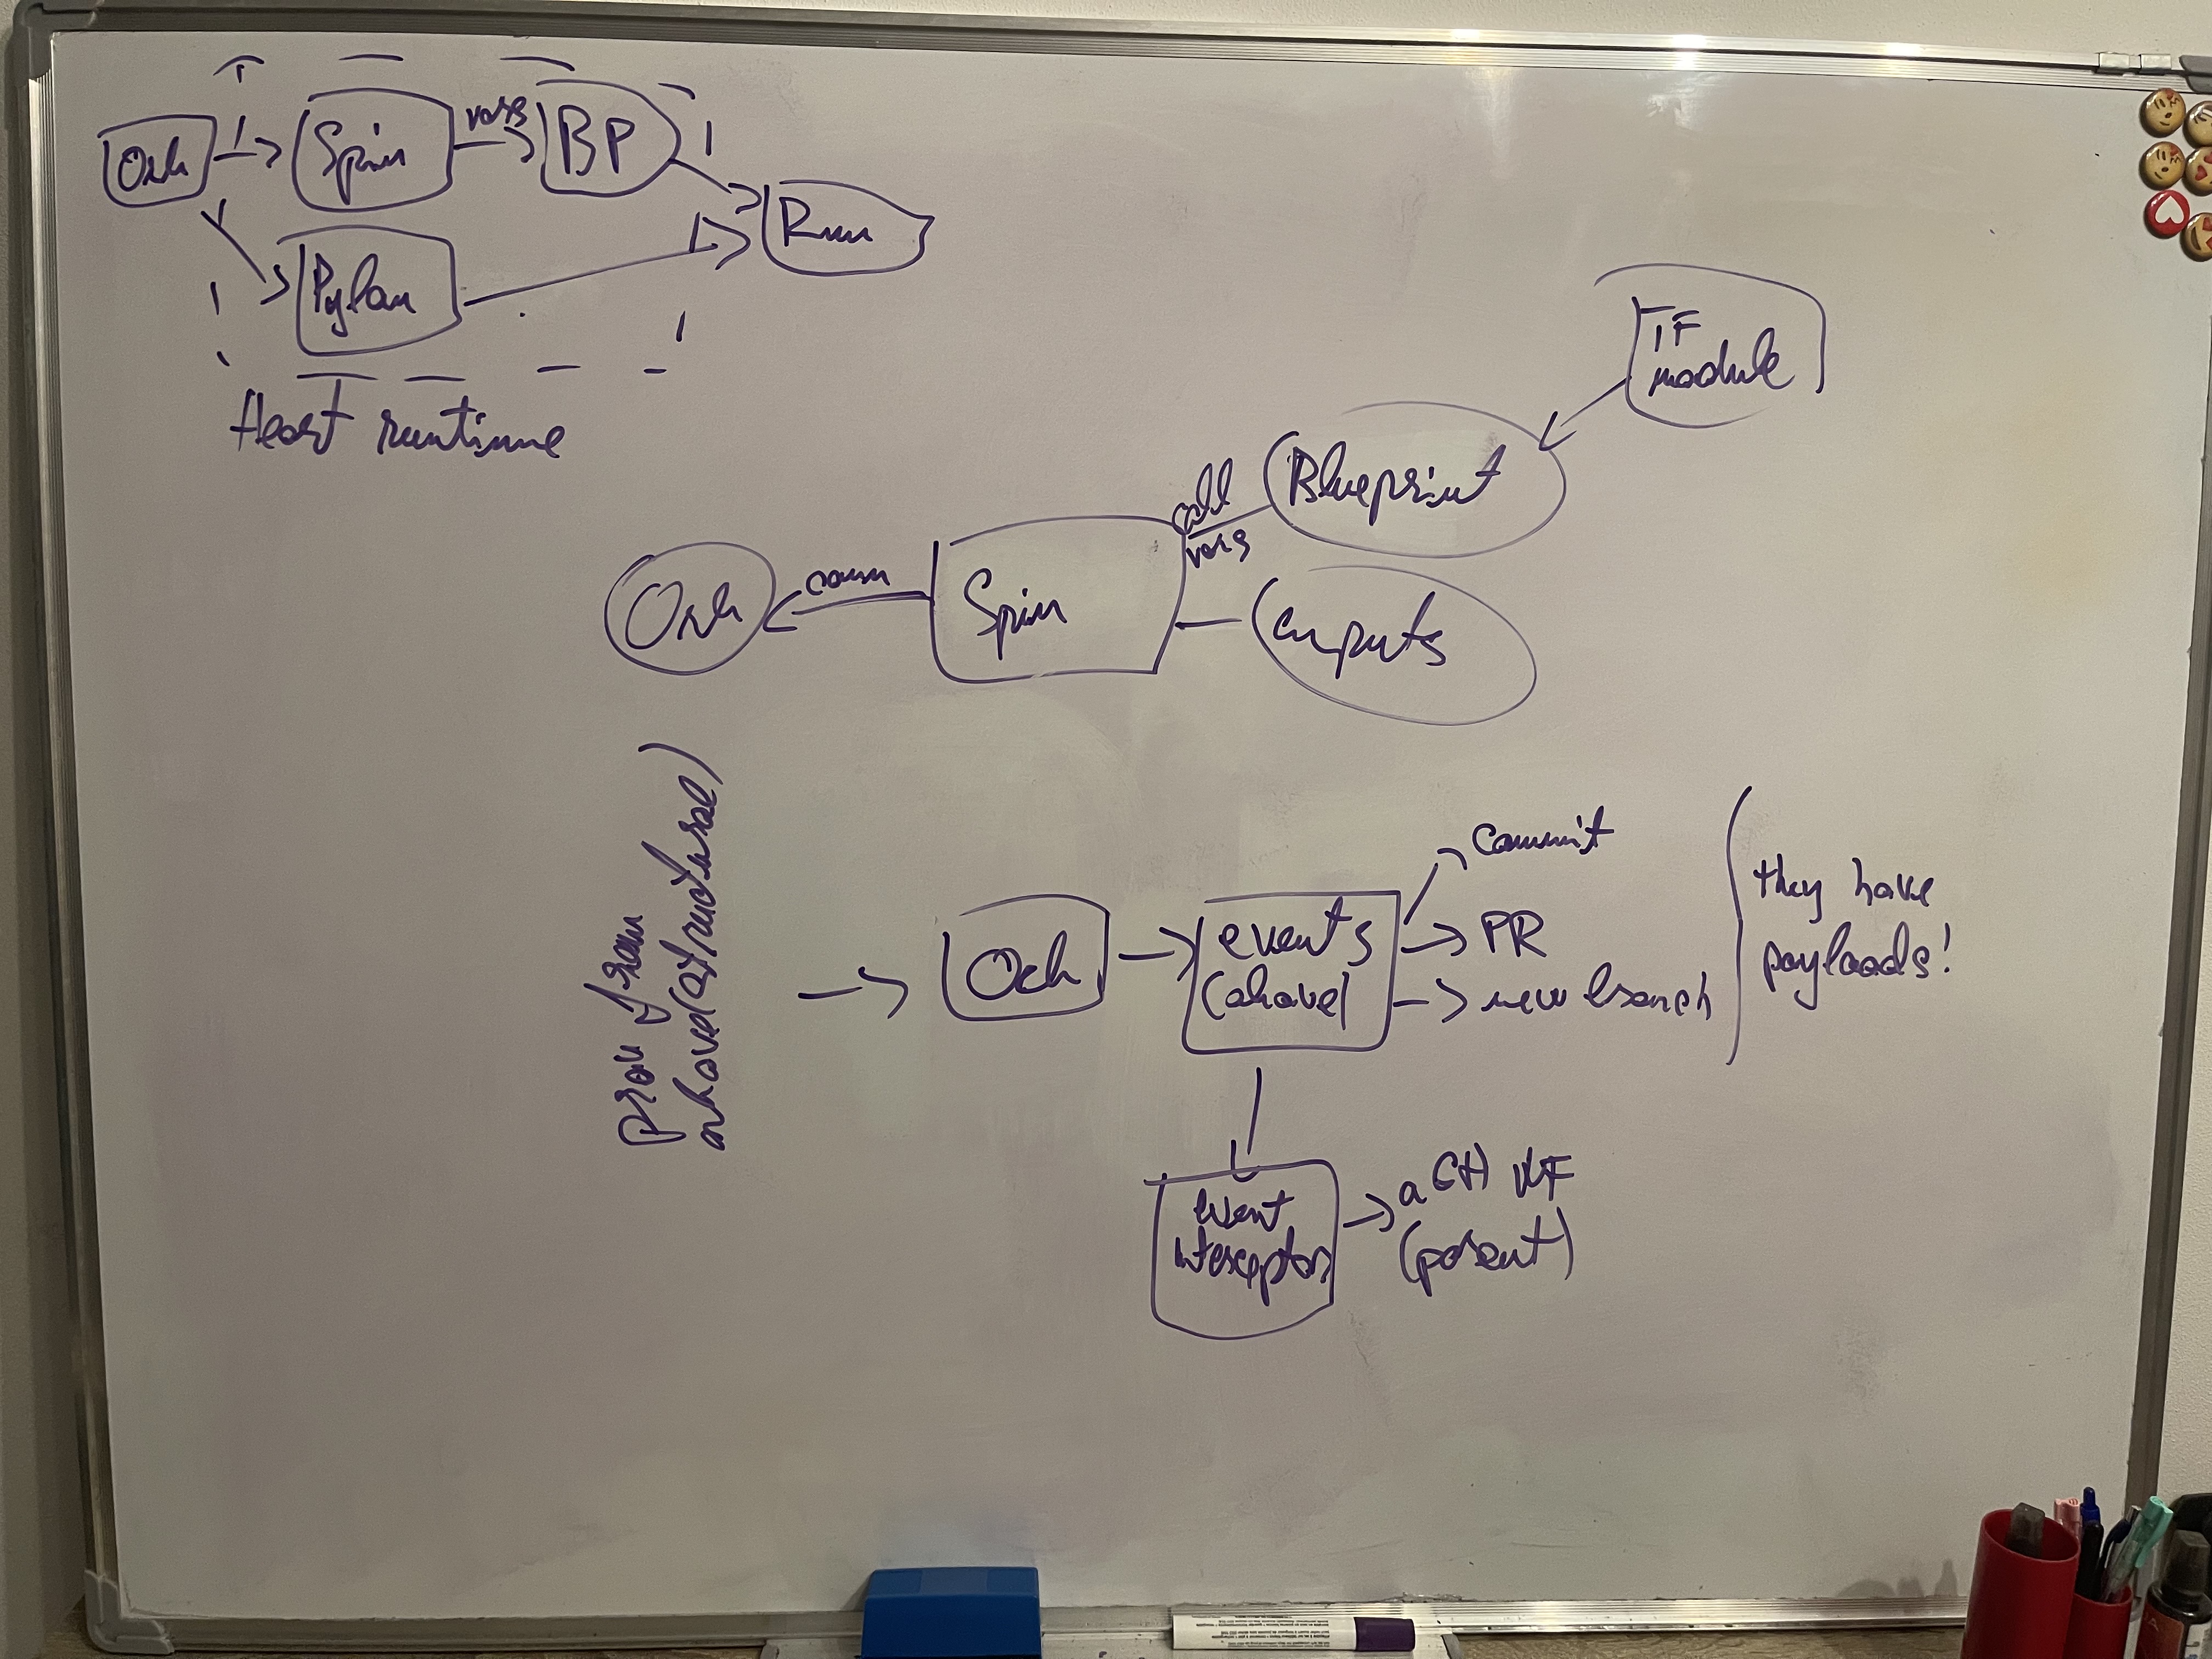 Orch
Spin
vars
BP
Run
Pylon
Heart runtime
TF
module
Blueprint
call
vars
Spin
Orch
inputs
from
above (structure)
Och
events
(above)
commit
PR
new branch
they have
payloads!
event
interceptor
a GH WF
(parent)